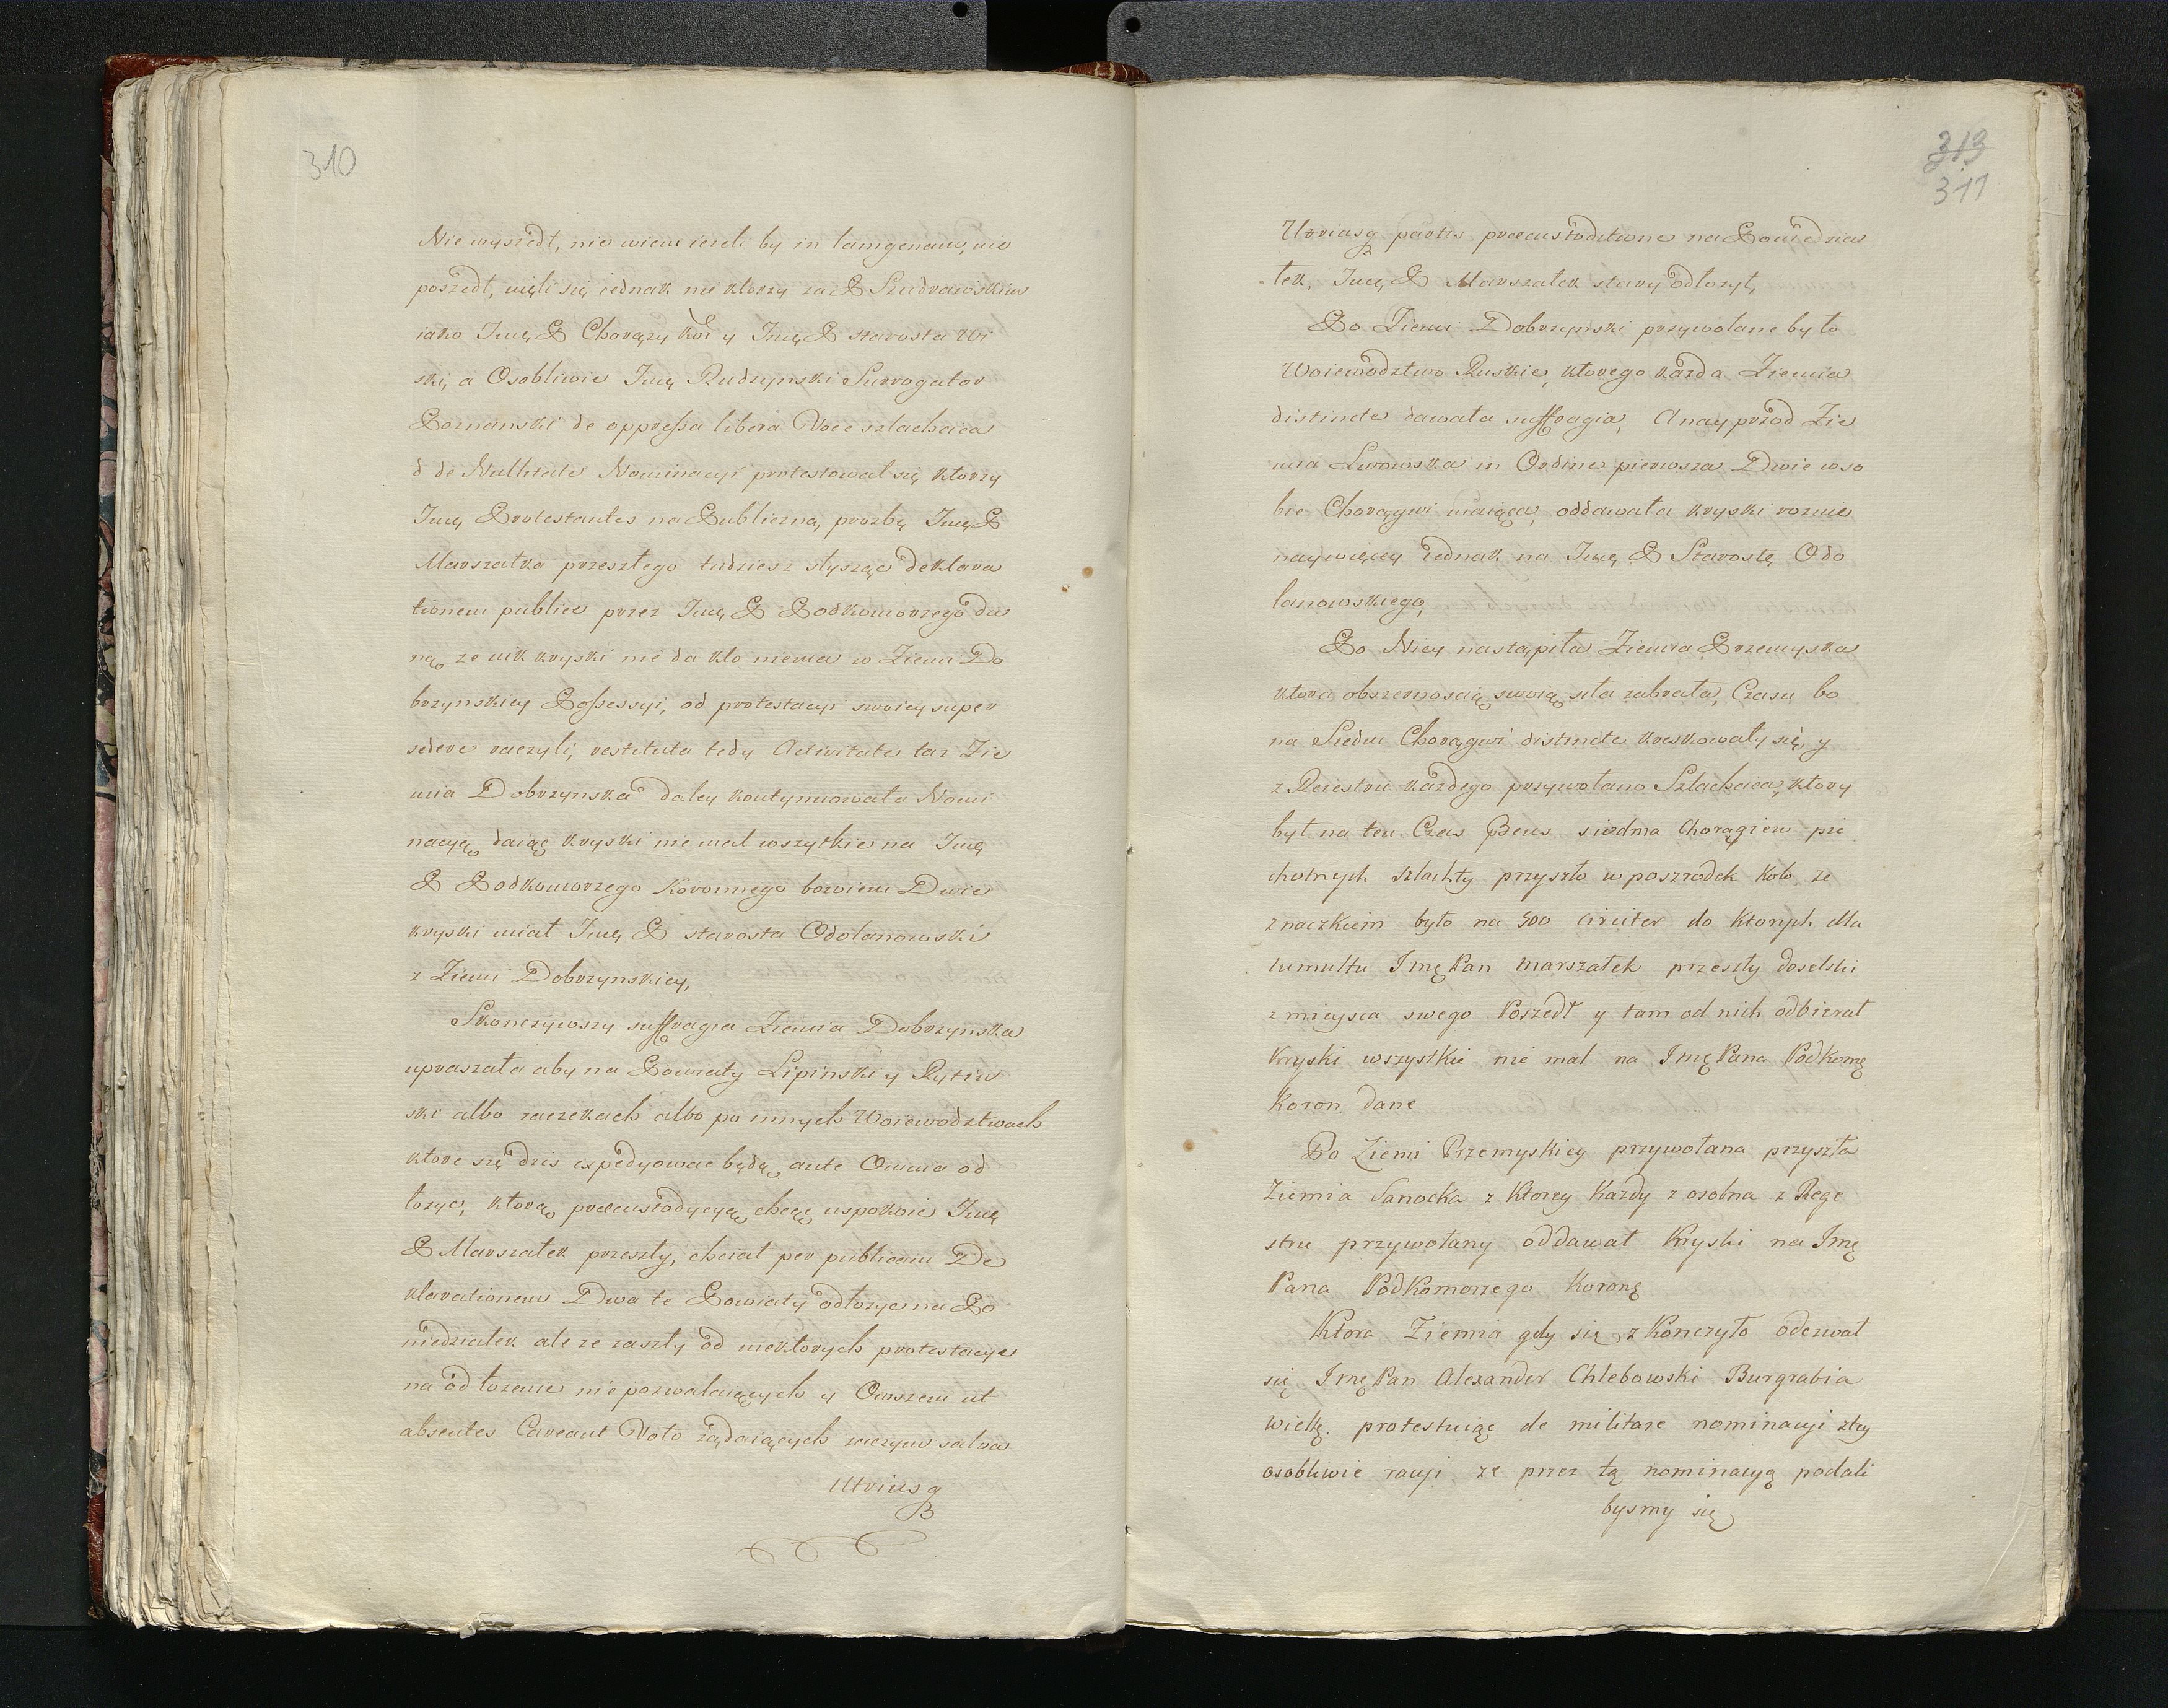 310
Nie wyszedł, nie wiem iezeli by in lamgenam, nie
poszedł, uięli się iednak nie ktorzy za P Szudrawskim
iako Imę P Chorązy Kor y Imę P starosta Wi
ski, a Osobliwie Imę Rudzynski Surrogator
Poznanski de oppressa libera Voce szlachcica
d de Nullitate Nominacyi protestował się ktorzy
Imę Protestantes na Publiczną prozbę Imę P
Marszałka przeszłego tudziesz słysząc deklara
tionem publice przez Imę P Podkomorzego da
ną, ze nik kryski nie da kto niema w Ziemi Do
brzynskiey Possessyi, od protestacyi swoiey super
sedere raczyli, restituta tedy Activitate taz Zie
mia Dobrzynska daley kontynuowała Nomi
nacyą daiąc kryski nie mal wszytkie na Imę
P Podkomorzego Koronnego bowiem Dwie
kryski miał Imę P starosta Odolanowski
z Ziemi Dobrzynskiey,
Skonczywszy suffragia Ziemia Dobrzynska
upraszała aby na Powiaty Lipinski y Rypin
ski albo zaczekach albo po innych Woiewodztwach
ktore się dzis expedyowac będą, ante Omnia od
łozyc, ktorą praecustodycyą chcąc uspokoic Imę
P Marszałek przeszły, chciał per publicam De
klarationem Dwa te Powiaty odłozyc na Po
niedziałek ale ze zaszły od niektorych protestacye
na odłozenie nie pozwalaiących y Owszem ut
absentes Careant Voto ządaiących zaczym salva
Utriusq
313
311
Utriusq partis praecustoditione na Poniedzia
łek, Imę P Marszałek stary odłozył,
Po Ziemi Dobrzynski przywołane było
Woiewodztwo Ruskie, ktorego kazda Ziemia
distincte dawała suffragia, A nay przod Zie
mia Lwowska in Ordine pierwsza Dwie w so
bie Chorągwi maiąca, oddawała kryski roznie
naywięcey iednak na Imę P Starostę Odo
lanowskiego,
Po Niey nastąpiła Ziemia Przemyska
ktora obszernoscią swoią siła zabrała, Czasu bo
na Siedm Chorągwi distincte kreskowały się, y
z Reiestru kazdego przywołano Szlachcica, ktory
był na ten Czas Praens siodma Choragiew pie
chotnych szlachty przyszło w poszrodek Koło ze
znaczkiem było na 500 circiter do ktorych dla
tumultu Imę Pan Marszałek przeszły Poselski
z mieysca swego Poszedł y tam od nich odbierał
Kryski wszystkie nie mal na Imę Pana Podkomę
Koron. dane
Po Ziemi Przemyskiey przywołana przyszła
Ziemia Sanocka z Ktorey Kazdy z osobna z Rege
stru przywołany oddawał Kryski na Imę
Pana Podkomorzego Koronę
Ktora Ziemia gdy się zkonczyło odezwał
się Imę Pan Alexander Chlebowski Burgrabia
wielkę. protestuiąc de militare nominacyi z tey
osobliwie racyi, ze przez tą nominacyą podali
bysmy się